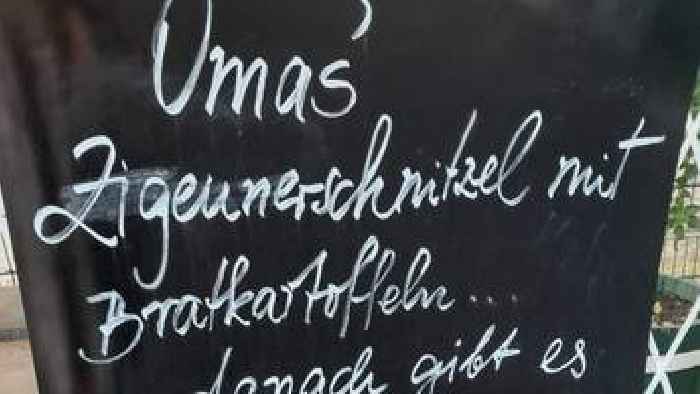 Omas'
Zigeunerschnitzel mit
Bratkartoffeln...
danach gibt es